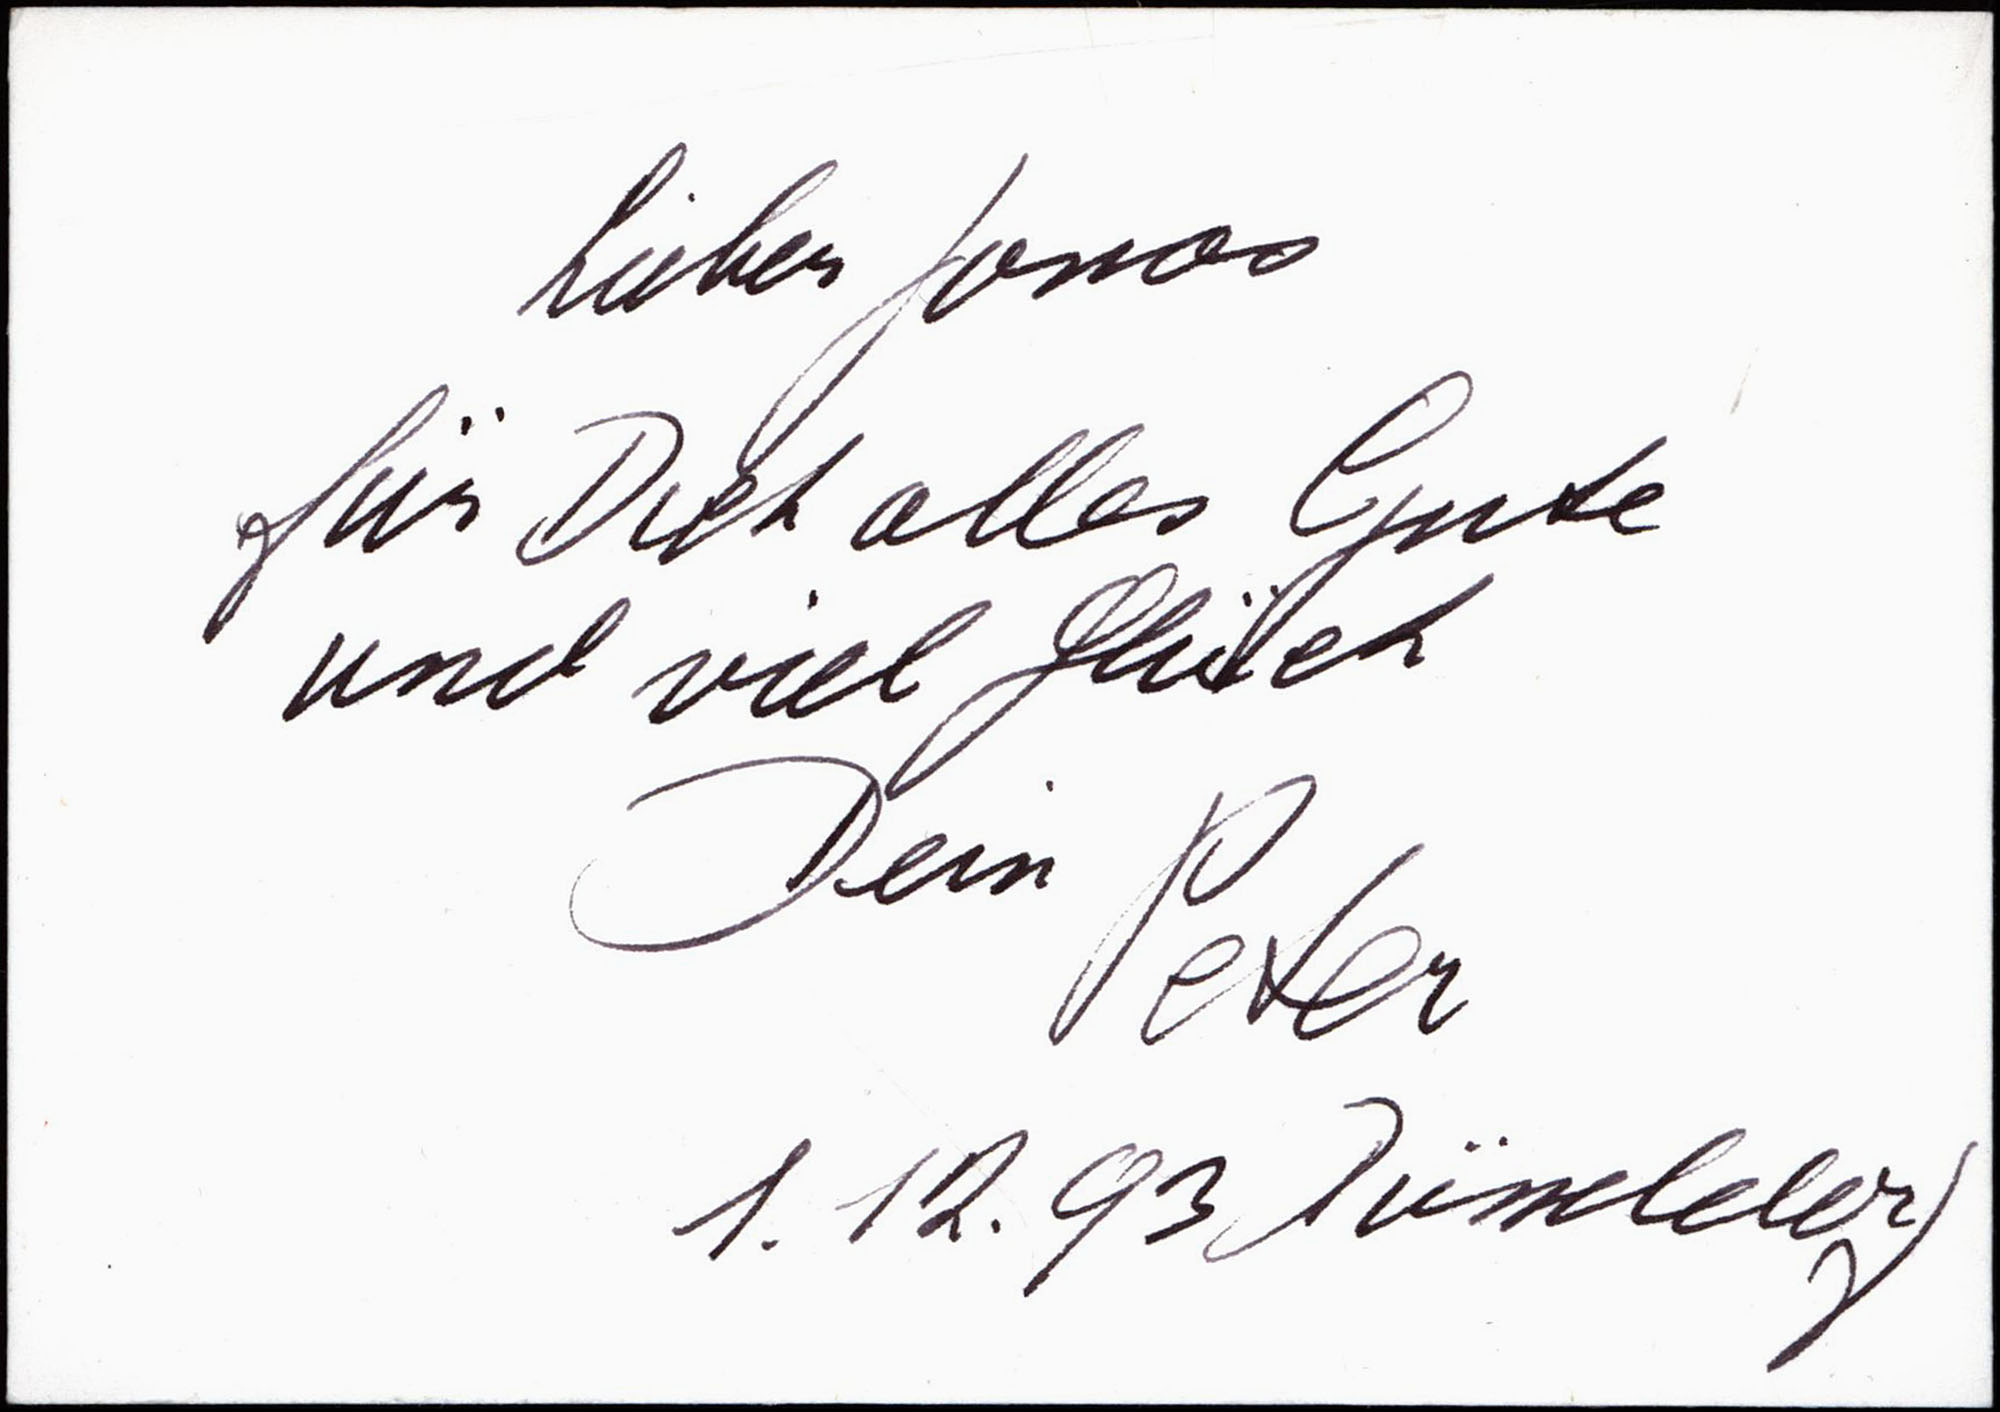 Lieber Jonas
für Dich alles Gute
und viel Glück
Dein
Peter
1.12.93 Düsseldorf